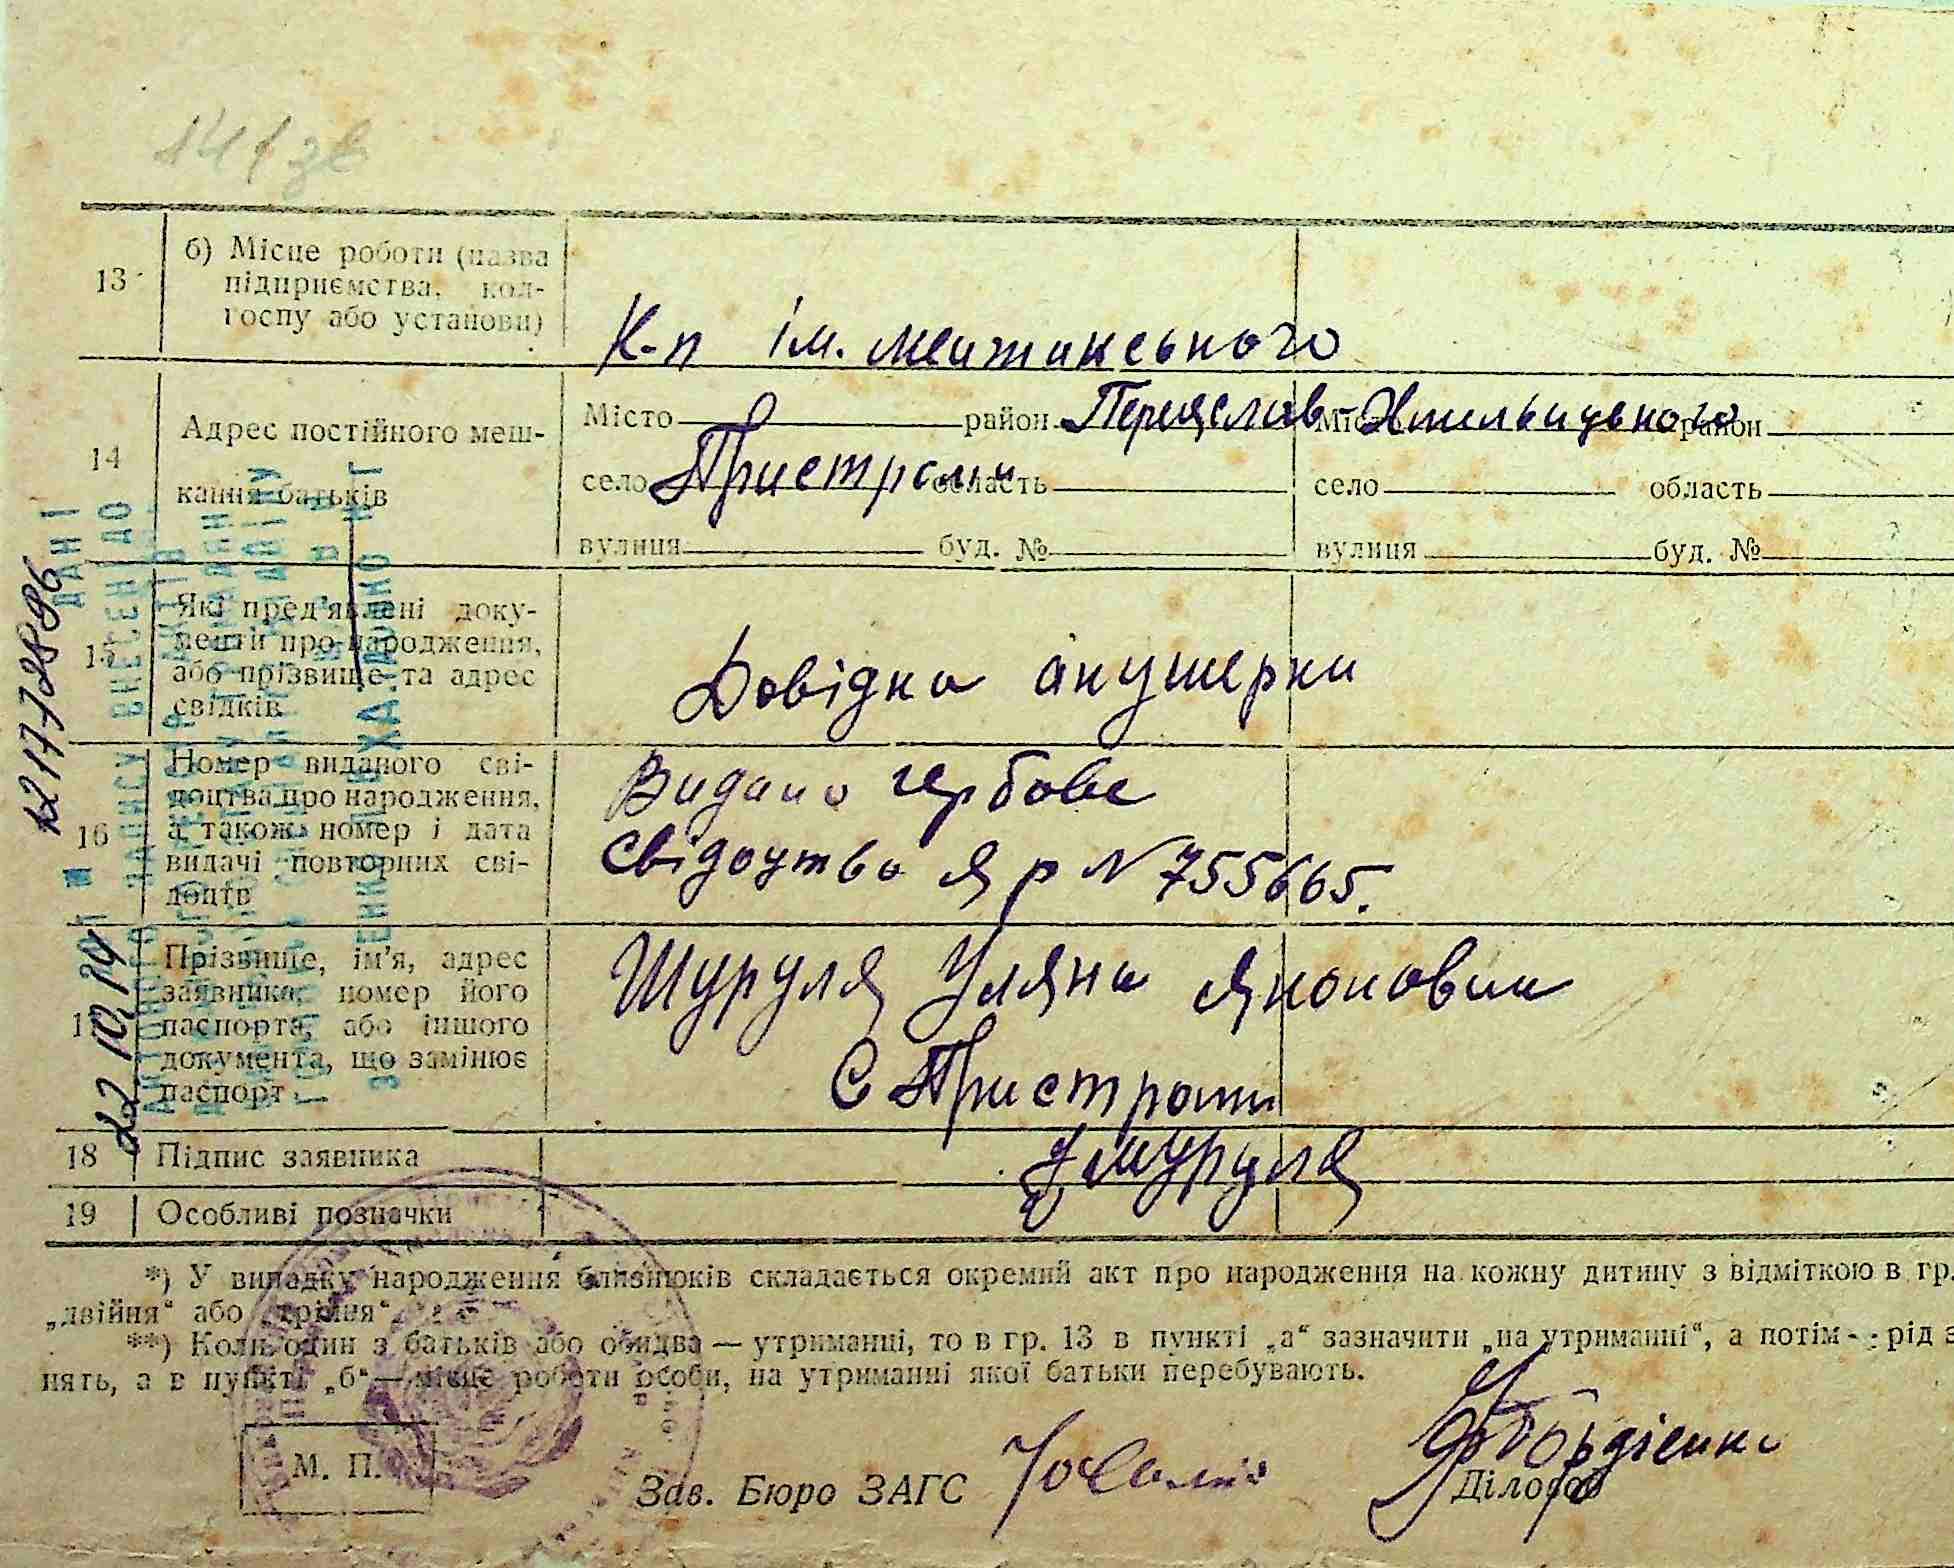 13 б) Місце роботи (назва
підприємства, кол-
госпу або установи)
К-п ім.
14 Адрес постійного меш-
кання батьків
Місто район Переяслав-Хмельницького Місто район
село Пристроми область село область
вулиця буд. № вулиця буд. №
15 Які пред'явлені доку-
менти про народження,
або прізвище та адрес
свідків
Довідка акушерки
16 Номер виданого сві-
доцтва про народження,
а також номер і дата
видачі повторних сві-
доцтв
Видано гербове
свідоцтво Я р N 755665.
17 Прізвище, ім'я, адрес
заявника, номер його
паспорта, або іншого
документа, що замінює
паспорт
Шуруля Уляна
С Пристроми
18 Підпис заявника
У Шуруля
19 Особливі позначки
*) У випадку народження близнюків складається окремий акт про народження на кожну дитину з відміткою в гр.
„двійня“ або „трійня“
**) Коли один з батьків або обидва — утриманці, то в гр. 13 в пункті „а“ зазначити „на утриманні“, а потім - рід з
нять, а в пункті „б“ — місце роботи особи, на утриманні якої батьки перебувають.
М. П.
Зав. Бюро ЗАГС
Гордієнко
Діловод
22.10.19